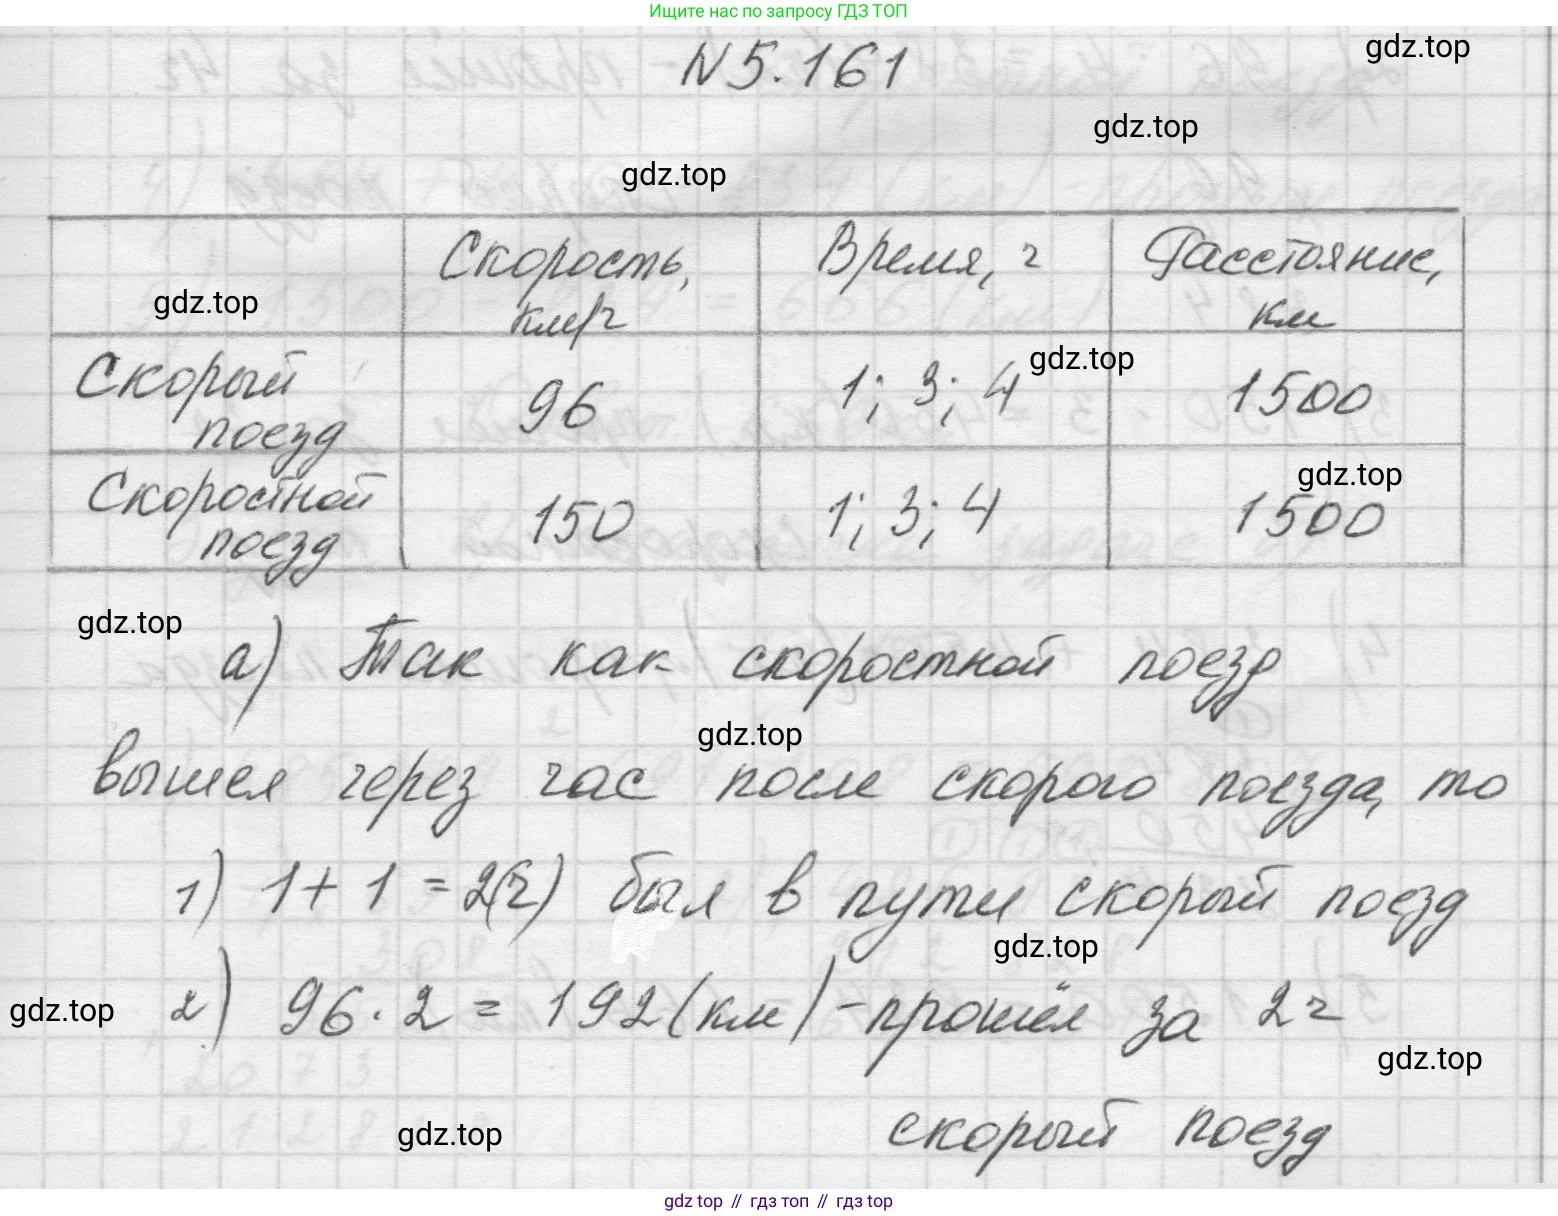 Ищите нас по запросу ГДЗ ТОП
N 5.161
gdz.top
gdz.top
gdz.top
Скорость, км/ч
Время, ч
Расстояние, км
gdz.top
Скорый поезд
96
1; 3; 4
gdz.top
1500
Скоростной поезд
150
1; 3; 4
gdz.top
1500
gdz.top
а) Так как скоростной поезд
gdz.top
вышел через час после скорого поезда, то
1) 1 + 1 = 2(ч) был в пути скорый поезд
gdz.top
gdz.top
2) 96 · 2 = 192 (км) - прошёл за 2 ч
gdz.top
gdz.top
скорый поезд
gdz top // гдз топ // гдз top